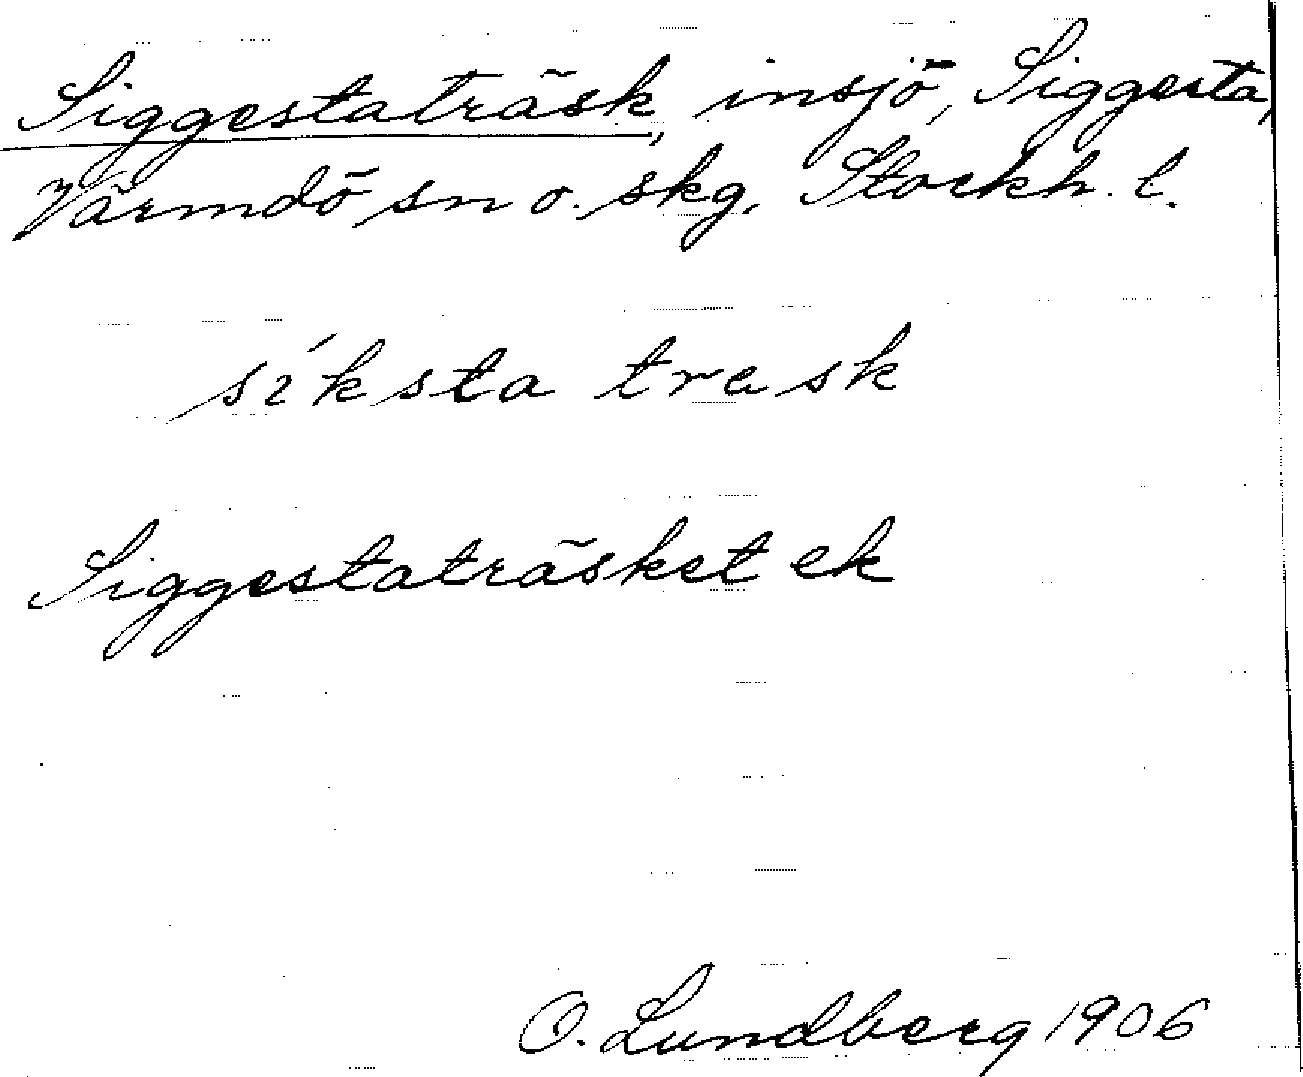 Siggestaträsk, insjö, Siggesta,
Värmdö sn o. skg, Stockh. l.
síksta trask
Siggestaträsket ek
O. Lundberg 1906